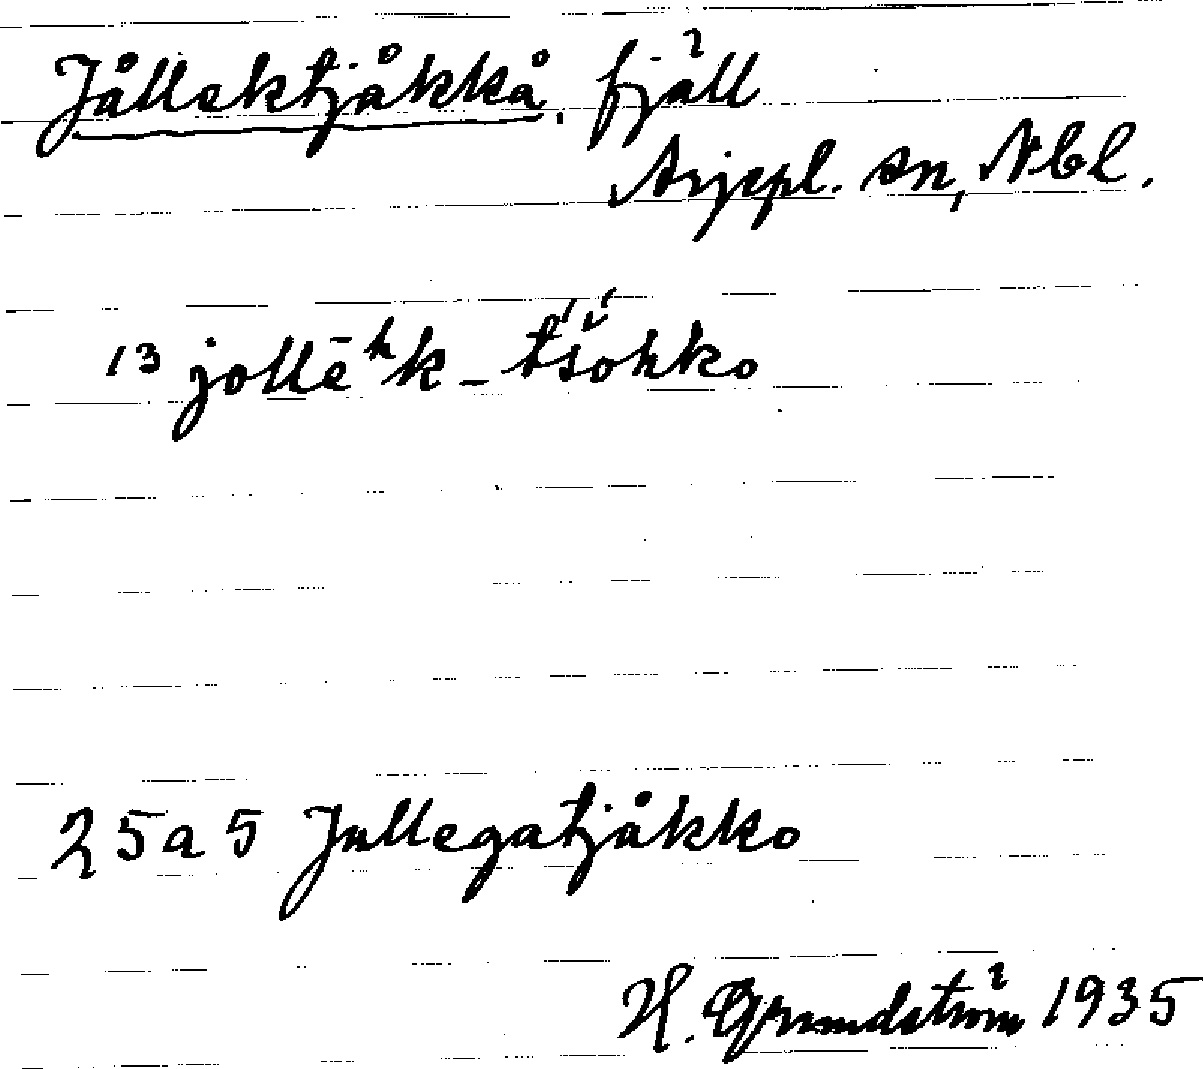 Jållektjåkkå, fjäll
Arjepl. sn, Nbl.
13 jollēʰk-tš́ohko
25a5 Jullegatjåkko
H. Grundström 1935